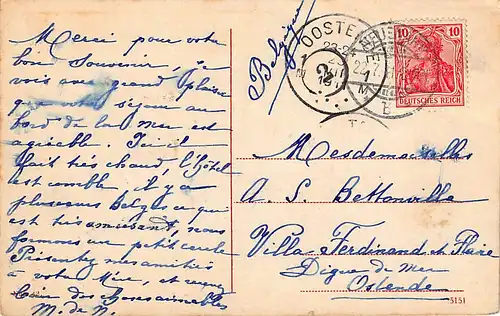 Merci pour votre
bon souvenir, je
vois avec grand plaisir
que votre séjour au
bord de la mer est
agréable. Ici il
fait très chaud, l'hôtel
est comble, il y a
plusieurs Belges ce qui
est très amusant, nous
formons un petit cercle
Présentez mes amitiés
à votre Mère, et
bien des choses aimables
M. de N.
Belgique
OOSTENDE
10 10
DEUTSCHES REICH
Mesdemoiselles
A. S. Bettonville
Villa Ferdinand et
Digue de mer
Ostende
5151